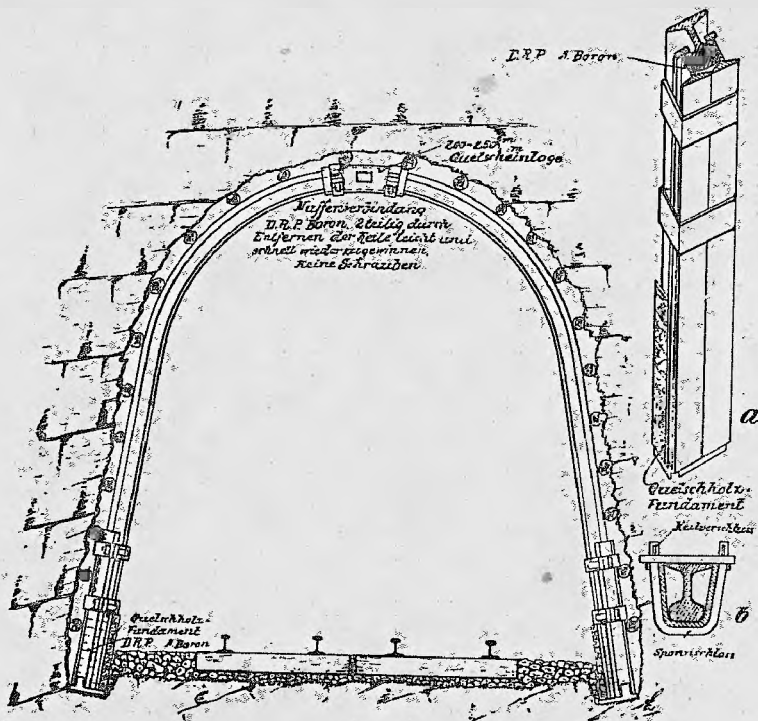 D.R.P. A. Boron
200-250 m/m
Quetscheinlage
Muffenverbindung
D.R.P. Boron. 2teilig durch
Entfernen der Keile leicht und
schnell wiederzugewinnen,
Keine Schrauben
a
Quetschholz-
Fundament
Keilverschluss
b
Spannschloss
Quetschholz-
Fundament
D.R.P. A. Boron